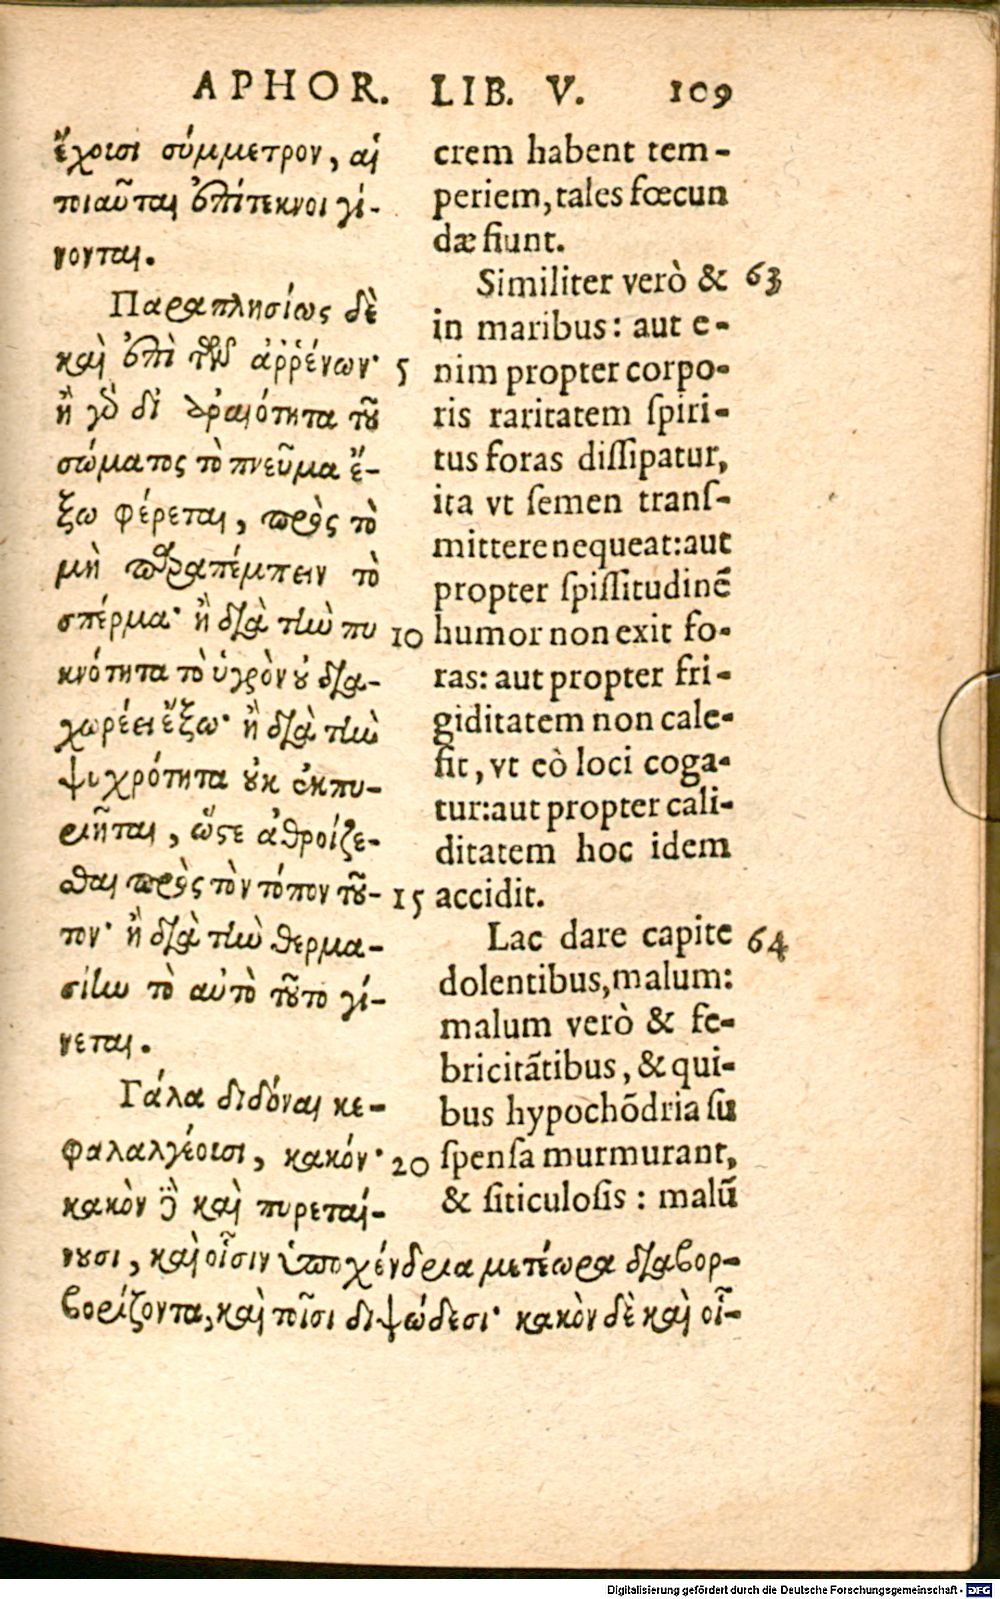 APHOR. LIB. V. 109
ἔχοισι σύμμετρον, αἱ
τοιαῦται ἐπίτεκνοι γί-
νονται.
Παραπλησίως δὲ
καὶ ἐπὶ τῶν ἀῤῥένων· 5
ἢ γὸ δἰ ἀραιότητα τοῦ
σώματος τὸ πνεῦμα ἔ-
ξω φέρεται, πρὸς τὸ
μὴ παραπέμπειν τὸ
σπέρμα· ἢ διὰ τὴν πυ 10
κνότητα τὸ ὑγρὸν οὐ δια-
χωρέει ἔξω· ἢ διὰ τὴν
ψυχρότητα οὐκ ἐκπυ-
ριῆται, ὥστε ἀθροίζε-
σθαι πρὸς τὸν τόπον τοῦ- 15
τον· ἢ διὰ τὴν θερμα-
σίην τὸ αὐτὸ τοῦτο γί-
νεται.
Γάλα διδόναι κε-
φαλαλγέοισι, κακόν· 20
κακὸν δὲ καὶ πυρεταί-
νουσι, καὶ οἷσιν ὑποχόνδρια μετέωρα διαβορ-
βορίζοντα, καὶ τοῖσι διψώδεσι· κακὸν δὲ καὶ οἷ-
crem habent tem-
periem, tales fœcun
dæ fiunt.
Similiter verò & 63
in maribus: aut e-
nim propter corpo-
ris raritatem ſpiri-
tus foras diſſipatur,
ita vt ſemen tranſ-
mittere nequeat: aut
propter ſpiſſitudinē
humor non exit fo-
ras: aut propter fri-
giditatem non cale-
fit, vt eò loci coga-
tur: aut propter cali-
ditatem hoc idem
accidit.
Lac dare capite 64
dolentibus, malum:
malum verò & fe-
bricitātibus, & qui-
bus hypochōdria ſu
ſpenſa murmurant,
& ſiticuloſis : malū
Digitalisierung gefördert durch die Deutsche Forschungsgemeinschaft - DFG